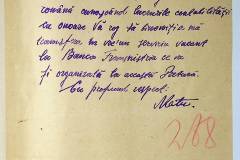 română cunoscând lucrările contabilității
cu onoare Vă rog să binevoiți mă
transfera la vre-un serviciu vacant
la Banca Transnistria ce va
fi organizată la această Dată.
Cu profund respect.
2/88